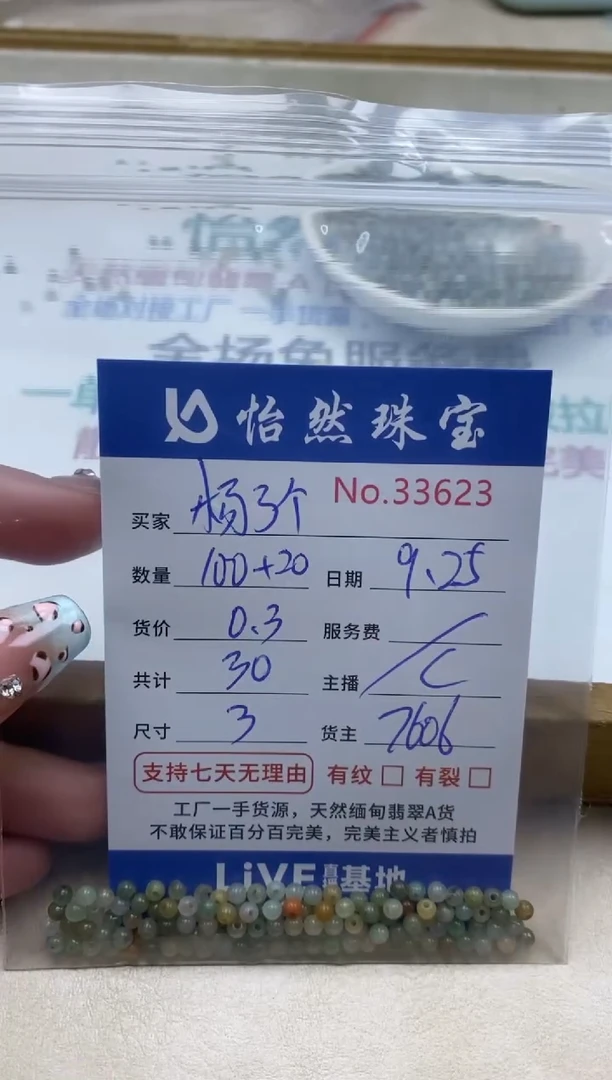 怡然珠宝
No.33623
买家 杨3个
数量 100+20 日期 9.25
货价 0.3 服务费 /
共计 30 主播 C
尺寸 3 货主 7606
支持七天无理由 有纹 □ 有裂 □
工厂一手货源，天然缅甸翡翠A货
不敢保证百分百完美，完美主义者慎拍
LiVE直播基地